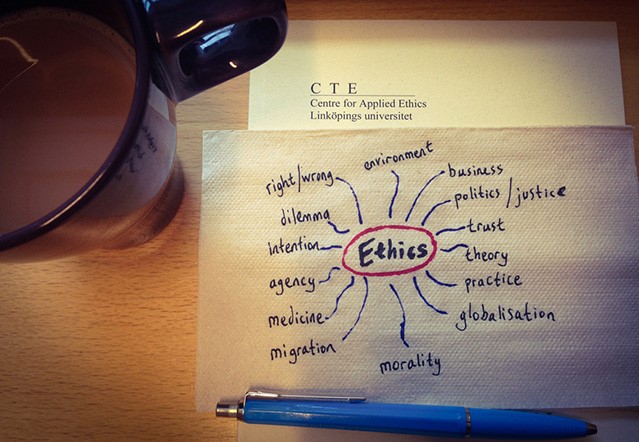 C T E
Centre for Applied Ethics
Linköpings universitet
environment
right/wrong
business
politics/justice
dilemma
trust
intention
Ethics
theory
agency
practice
medicine
globalisation
migration
morality